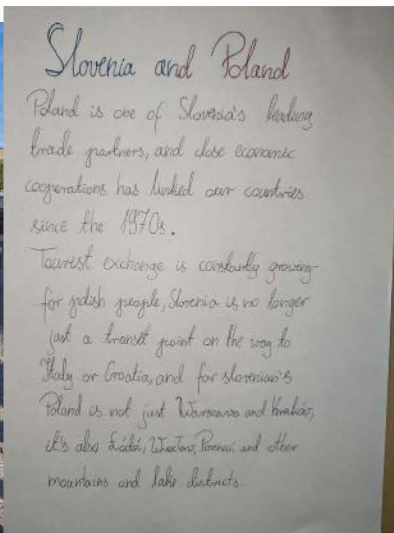 Slovenia and Poland
Poland is one of Slovenia's leading
trade partners, and close economic
cooperations has linked our countries
since the 1970s.
Tourist exchange is constantly growing
for polish people, Slovenia is no longer
just a transit point on the way to
Italy or Croatia, and for slovenian's
Poland is not just Warszawa and Kraków,
it's also Łódź, Wrocław, Poznań and other
mountains and lake districts.